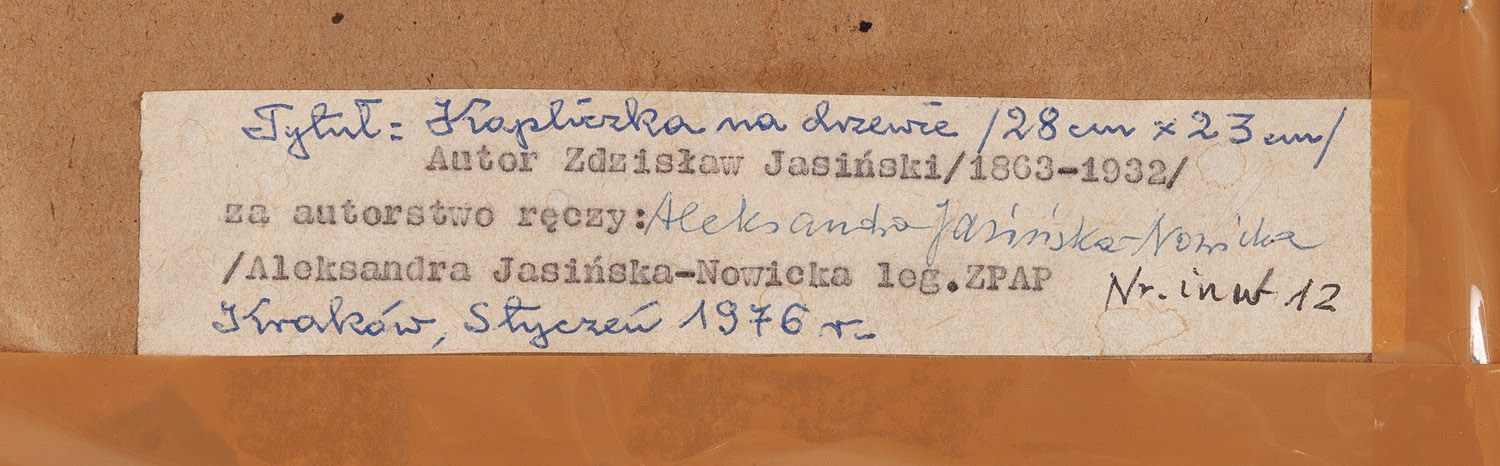 Tytuł: Kapliczka na drzewie /28 cm x 23 cm/
Autor Zdzisław Jasiński/1863-1932/
za autorstwo ręczy: Aleksandra Jasińska-Nowicka
/Aleksandra Jasińska-Nowicka leg.ZPAP
Nr. inw 12
Kraków, Styczeń 1976 r.